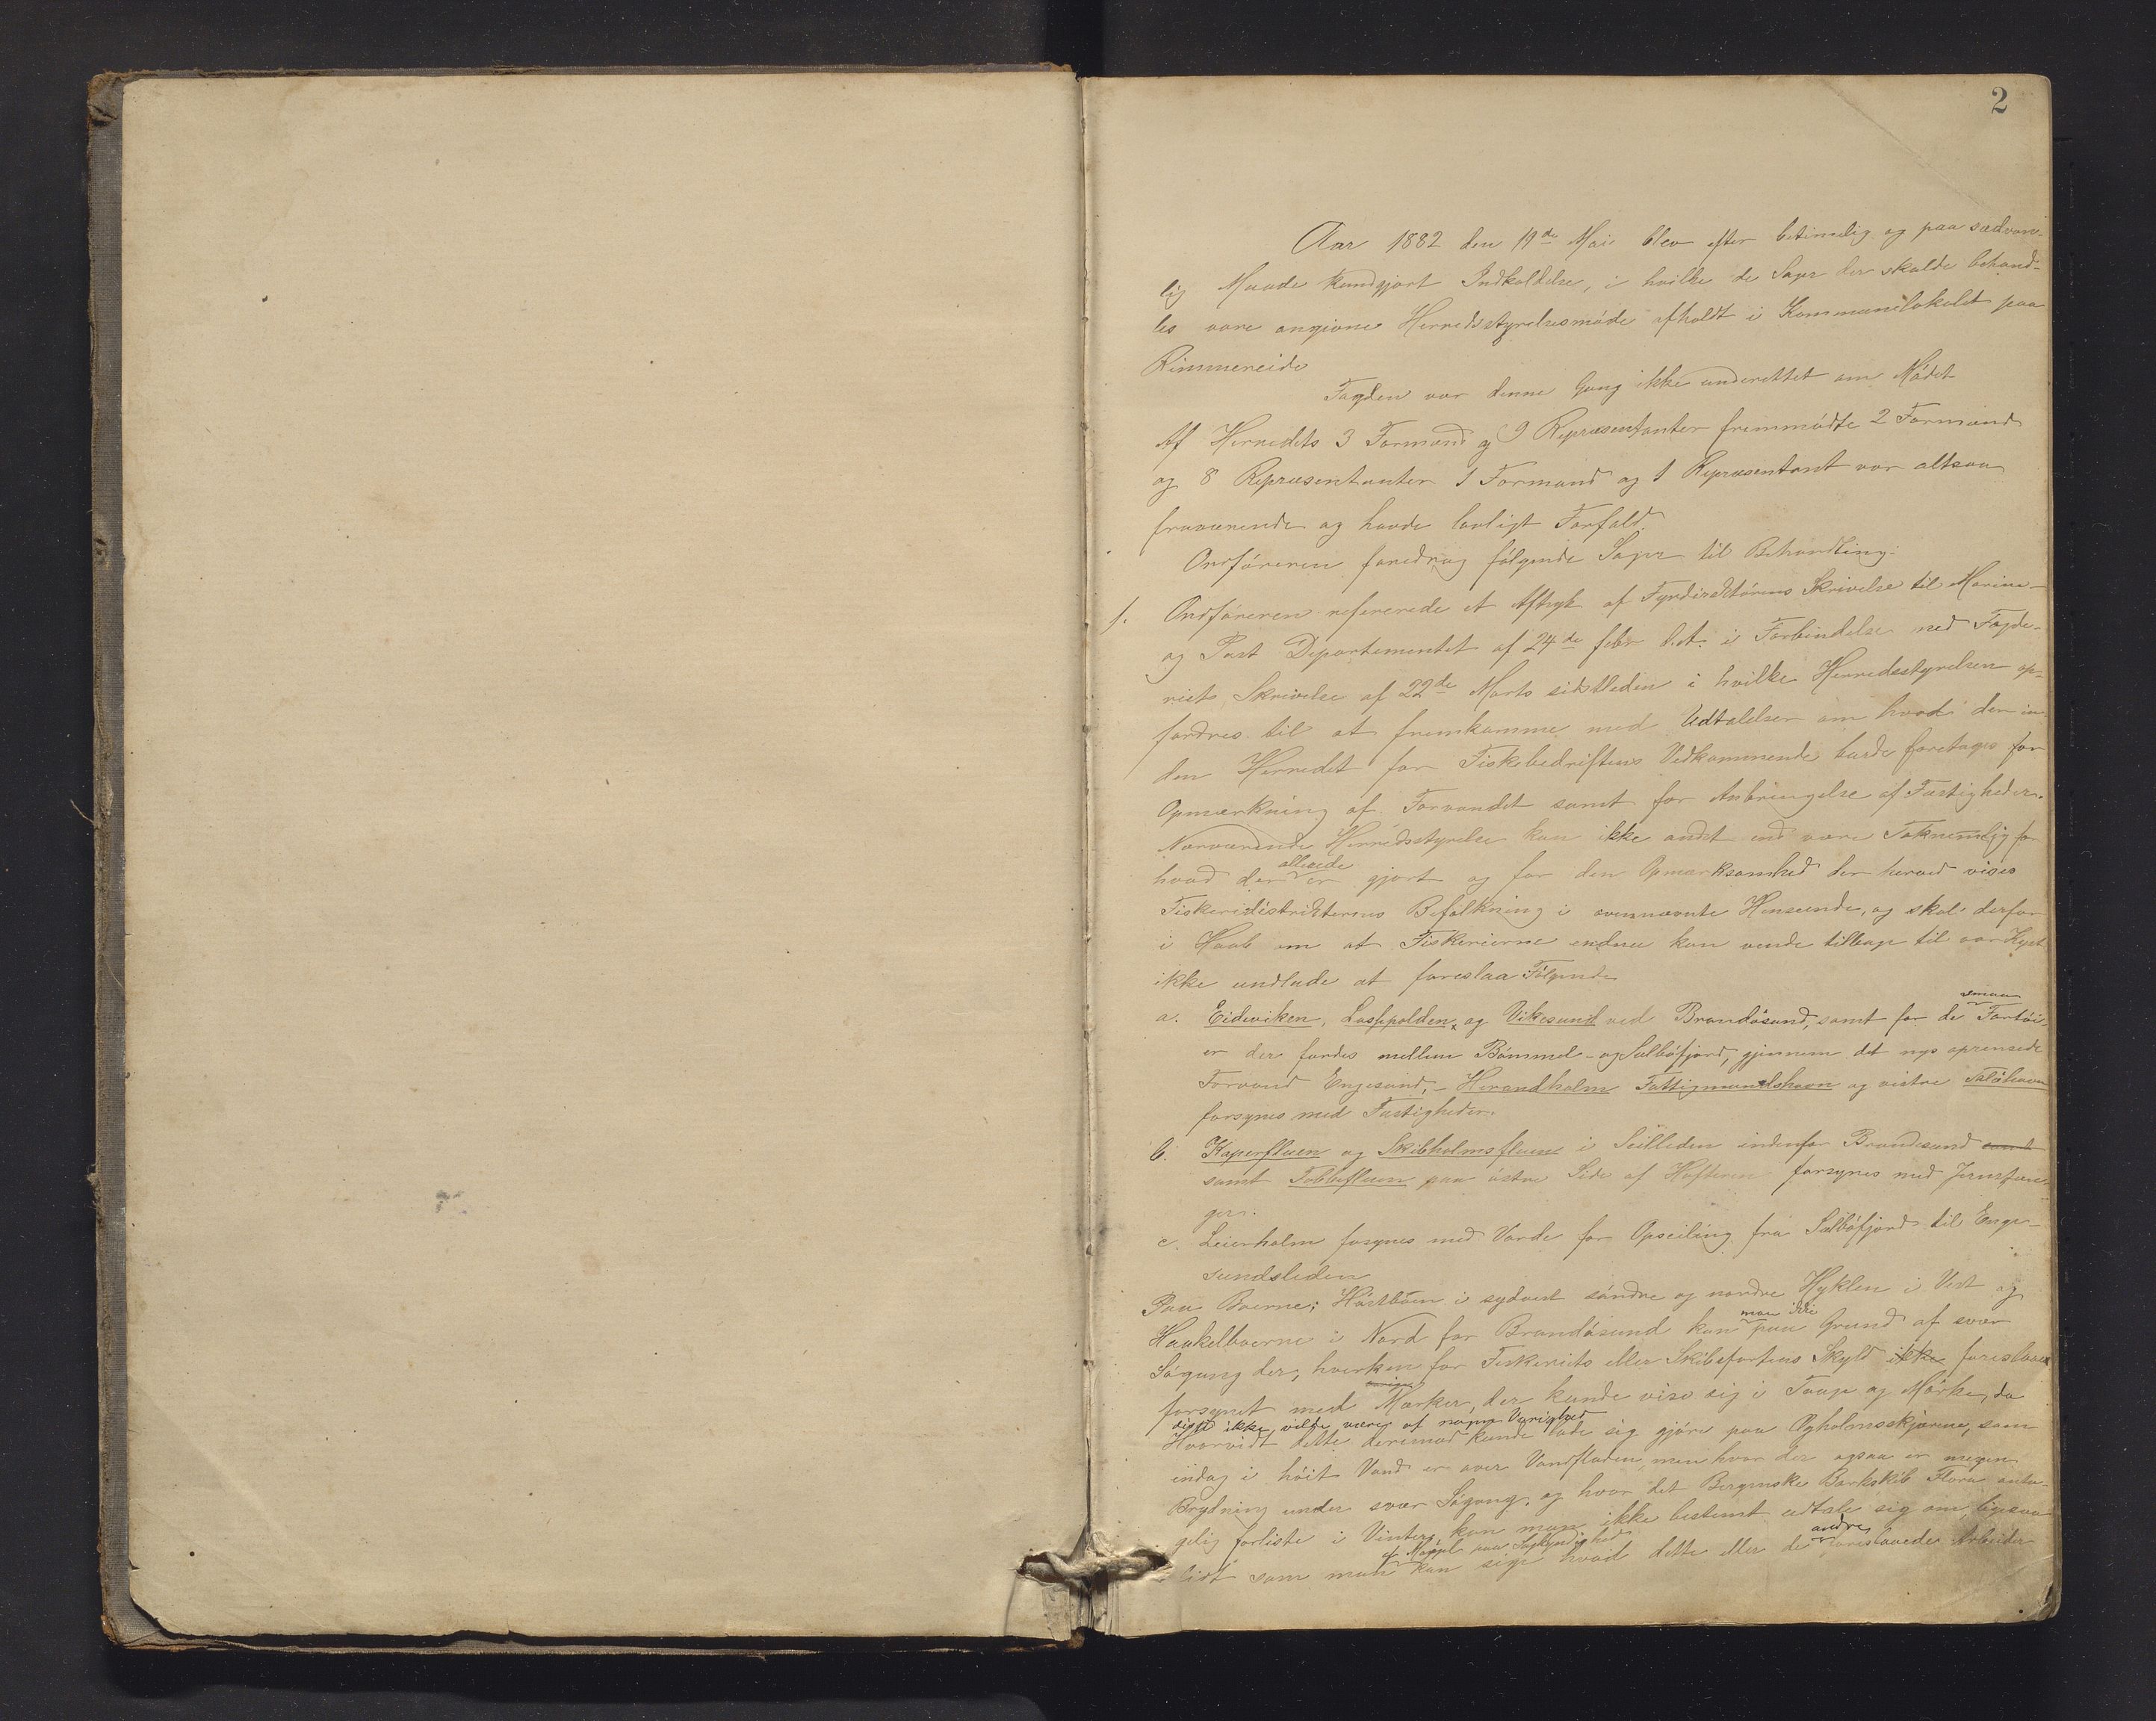 2
Aar 1882 den 19de Mai blev efter betimelig og paa sædvan-
lig Maade kundgjort Indkaldelse, i hvilke de Sager der skulde behand-
les vare angivne Herredsstyrelsesmøde afholdt i Kommunelokalet paa
Rimmereide
Fogden var denne Gang ikke underettet om Mødet
Af Herredets 3 Formænd og 9 Repræsentanter fremmødte 2 Formænd
og 8 Repræsentanter 1 Formand og 1 Repræsentant var altsaa
fraværende og havde lovligt Forfald.
Ordføreren foredrog følgende Sager til Behandling:
1. Ordføreren refererede et Aftryk af Fyrdirektørens Skrivelse til Marine-
og Post Departementet af 24de febr d.A. i Forbindelse med Fogde-
riets Skrivelse af 22de Marts sidstleden i hvilke Herredsstyrelsen op-
fordres til at fremkomme med Udtalelser om hvad der in-
den Herredet for Fiskebedriftens Vedkommende burde foretages for
Opmærkning af Farvandet samt for Anbringelse af Fastigheder.
Nærværende Herredsstyrelse kan ikke andet end være Taknemlig for
hvad der allerede er gjort og for den Opmærksomhed der herved vises
Fiskeridistrikternes Befolkning i ovennævnte Henseende, og skal derfor
i Haab om at Fiskerierne endnu kan vende tilbage til vor Kyst
ikke undlade at foreslaa Følgende
a. Eideviken, Lasppolden, og Vikesund ved Brandøsund, samt for de smaa Fartøi-
er der færdes mellem Bømmel- og Selbøfjord, gjennem det nys oprensede
Farvand Engesund, - Herandholm Fattigmandshavn og vistre Saløhavn
forsynes med Fastigheder.
b. Kaperfluen og Skibholmsfluen i Seilleden indenfor Brandesund samt
samt Tobbefluen paa østre Side af Hufteren forsynes med Jernstæn-
ger.
c. Leierholm forsynes med Varde for Opseiling fra Selbøfjord til Enge-
sundsleden
Paa Boerne; Høstboen i sydvest søndre og nordre Hyklen i Vest og
Haakelboerne i Nord for Brandøsund kan man ikke paa Grund af svær
Søgang der, hverken for Fiskeriets eller Skibsfartens Skyld ikke foreslaaes
forsynet med Mærker, der kunde vise sig i Taage og Mørke, da
disse ikke vilde være af nogen Varighed
Hvorvidt dette derimod kunde lade sig gjøre paa Øgholmsskjærene, som
endog i høit Vand er over Vandfladen men hvor der ogsaa er megen
Brydning under svær Søgang, og hvor det Bergenske Barkskib Flora anta-
gelig forliste i Vinter, kan man ikke bestemt udtale sig om, ligesaa
lidt som man af Mangel paa Sagkyndighed kan sige hvad dette eller de andre foreslaaede Arbeider